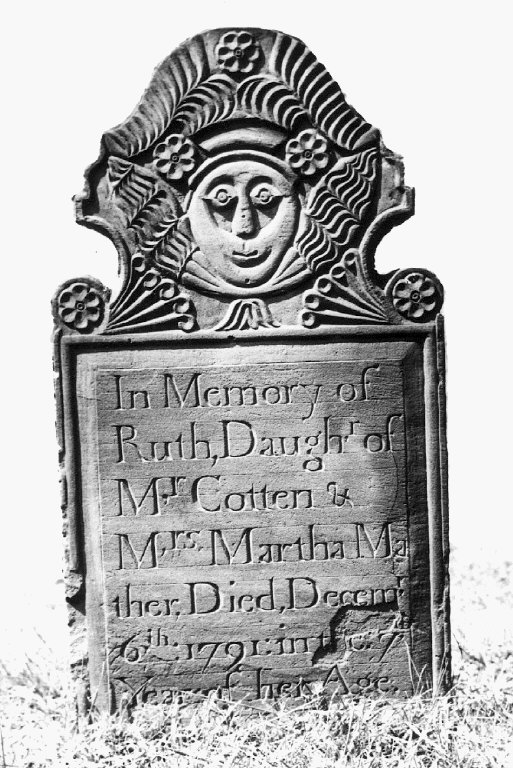 In Memory of
Ruth, Daughr of
Mr Cotten &
M,rs, Martha Ma
ther, Died, Decemr
6th 1791 in the 7th
Year of her Age.